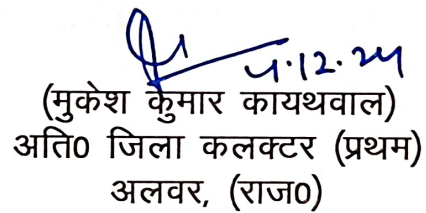 4.12.24
(मुकेश कुमार कायथवाल)
अति0 जिला कलक्टर (प्रथम)
अलवर, (राज0)